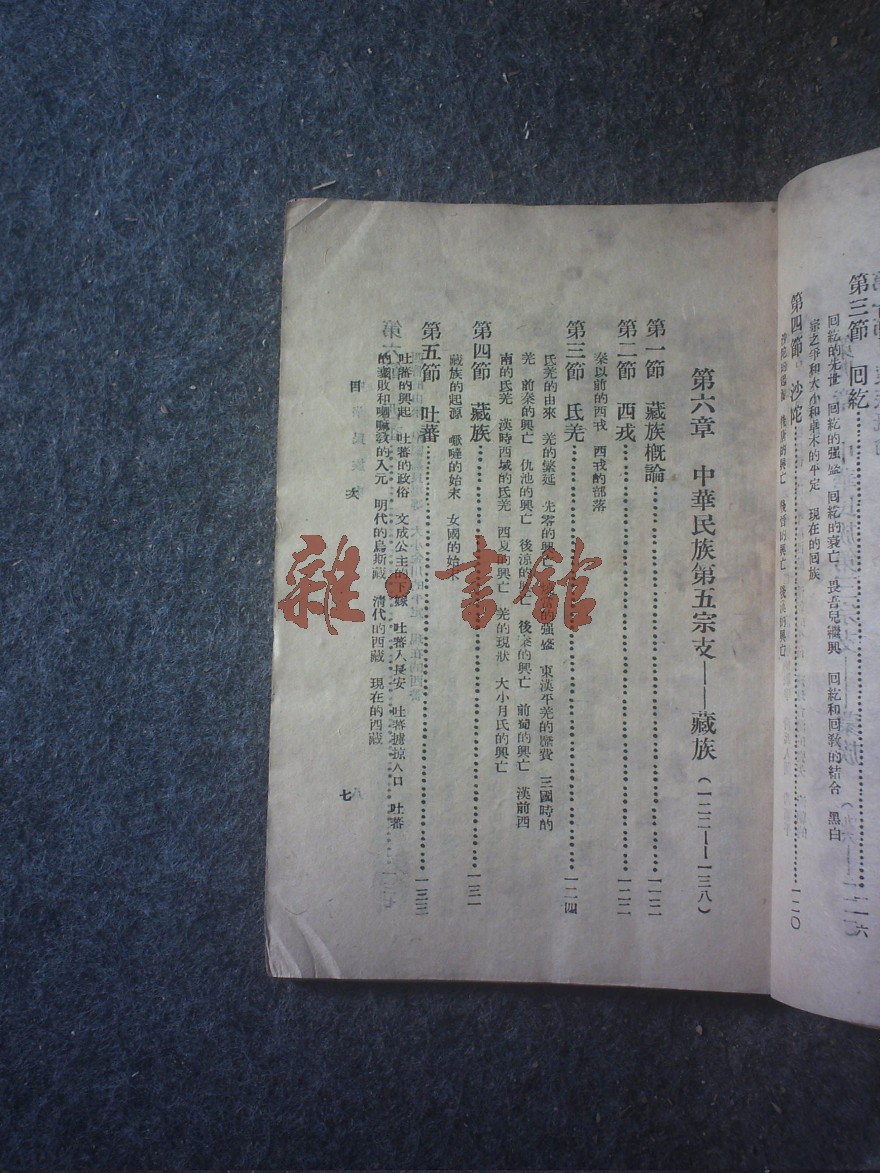 第三節 回紇
回紇的先世 回紇的强盛 回紇的衰亡 畏吾兒繼興 回紇和回敎的結合 黑白
宗之爭和大小和卓木的平定 現在的回族
第四節 沙陀 一二〇
後唐的興亡 後晉的興亡 後漢的興亡
第六章 中華民族第五宗支——藏族(一二二——一三八)
第一節 藏族概論 一二二
第二節 西戎 一二二
秦以前的西戎 西戎的部落
第三節 氐羌 一二四
氐羌的由來 羌的繁延 先零的興亡 的强盛 東漢平羌的糜費 三國時的
羌 前秦的興亡 仇池的興亡 後涼的興亡 後秦的興亡 前蜀的興亡 漢前西
南的氐羌 漢時西域的氐羌 西夏的興亡 羌的現狀 大小月氏的興亡
第四節 藏族 一三一
藏族的起源 嚈噠的始末 女國的始末
第五節 吐蕃 一三三
吐蕃的興起 吐蕃的政俗 文成公主的下嫁 吐蕃入長安 吐蕃擄掠人口 吐蕃
的衰敗和喇嘛敎的入元 明代的烏斯藏 清代的西藏 現在的西藏
目 次
七
雜·書館